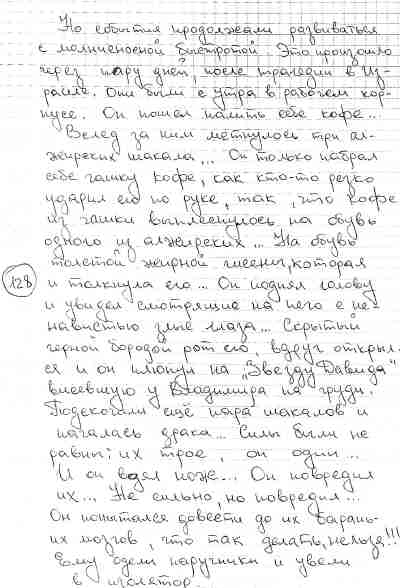 Но события продолжали развиваться
с молниеносной быстротой. Это произошло
через пару дней, после трагедии в Из-
раиле. Они были с утра в рабочем кор-
пусе. Он пошел налить себе кофе...
Вслед за ним метнулось три ал-
жирских шакала... Он только набрал
себе чашку кофе, как кто-то резко
ударил его по руке, так, что кофе
из чашки выплеснулось на обувь
одного из алжирских... На обувь
толстой жирной гиены, которая
128
и толкнула его... Он поднял голову
и увидел смотрящие на него с не-
навистью злые глаза... Скрытый
черной бородой рот его, вдруг открыл-
ся и он плюнул на "Звезду Давида"
висевшую у Владимира на груди.
Подскочили ещё пара шакалов и
началась драка... Силы были не
равны; их трое, он один...
И он взял нож... Он повредил
их... Не сильно, но повредил...
Он попытался довести до их барань-
их мозгов, что так делать, нельзя!!!
Ему одели наручники и увели
в изолятор.